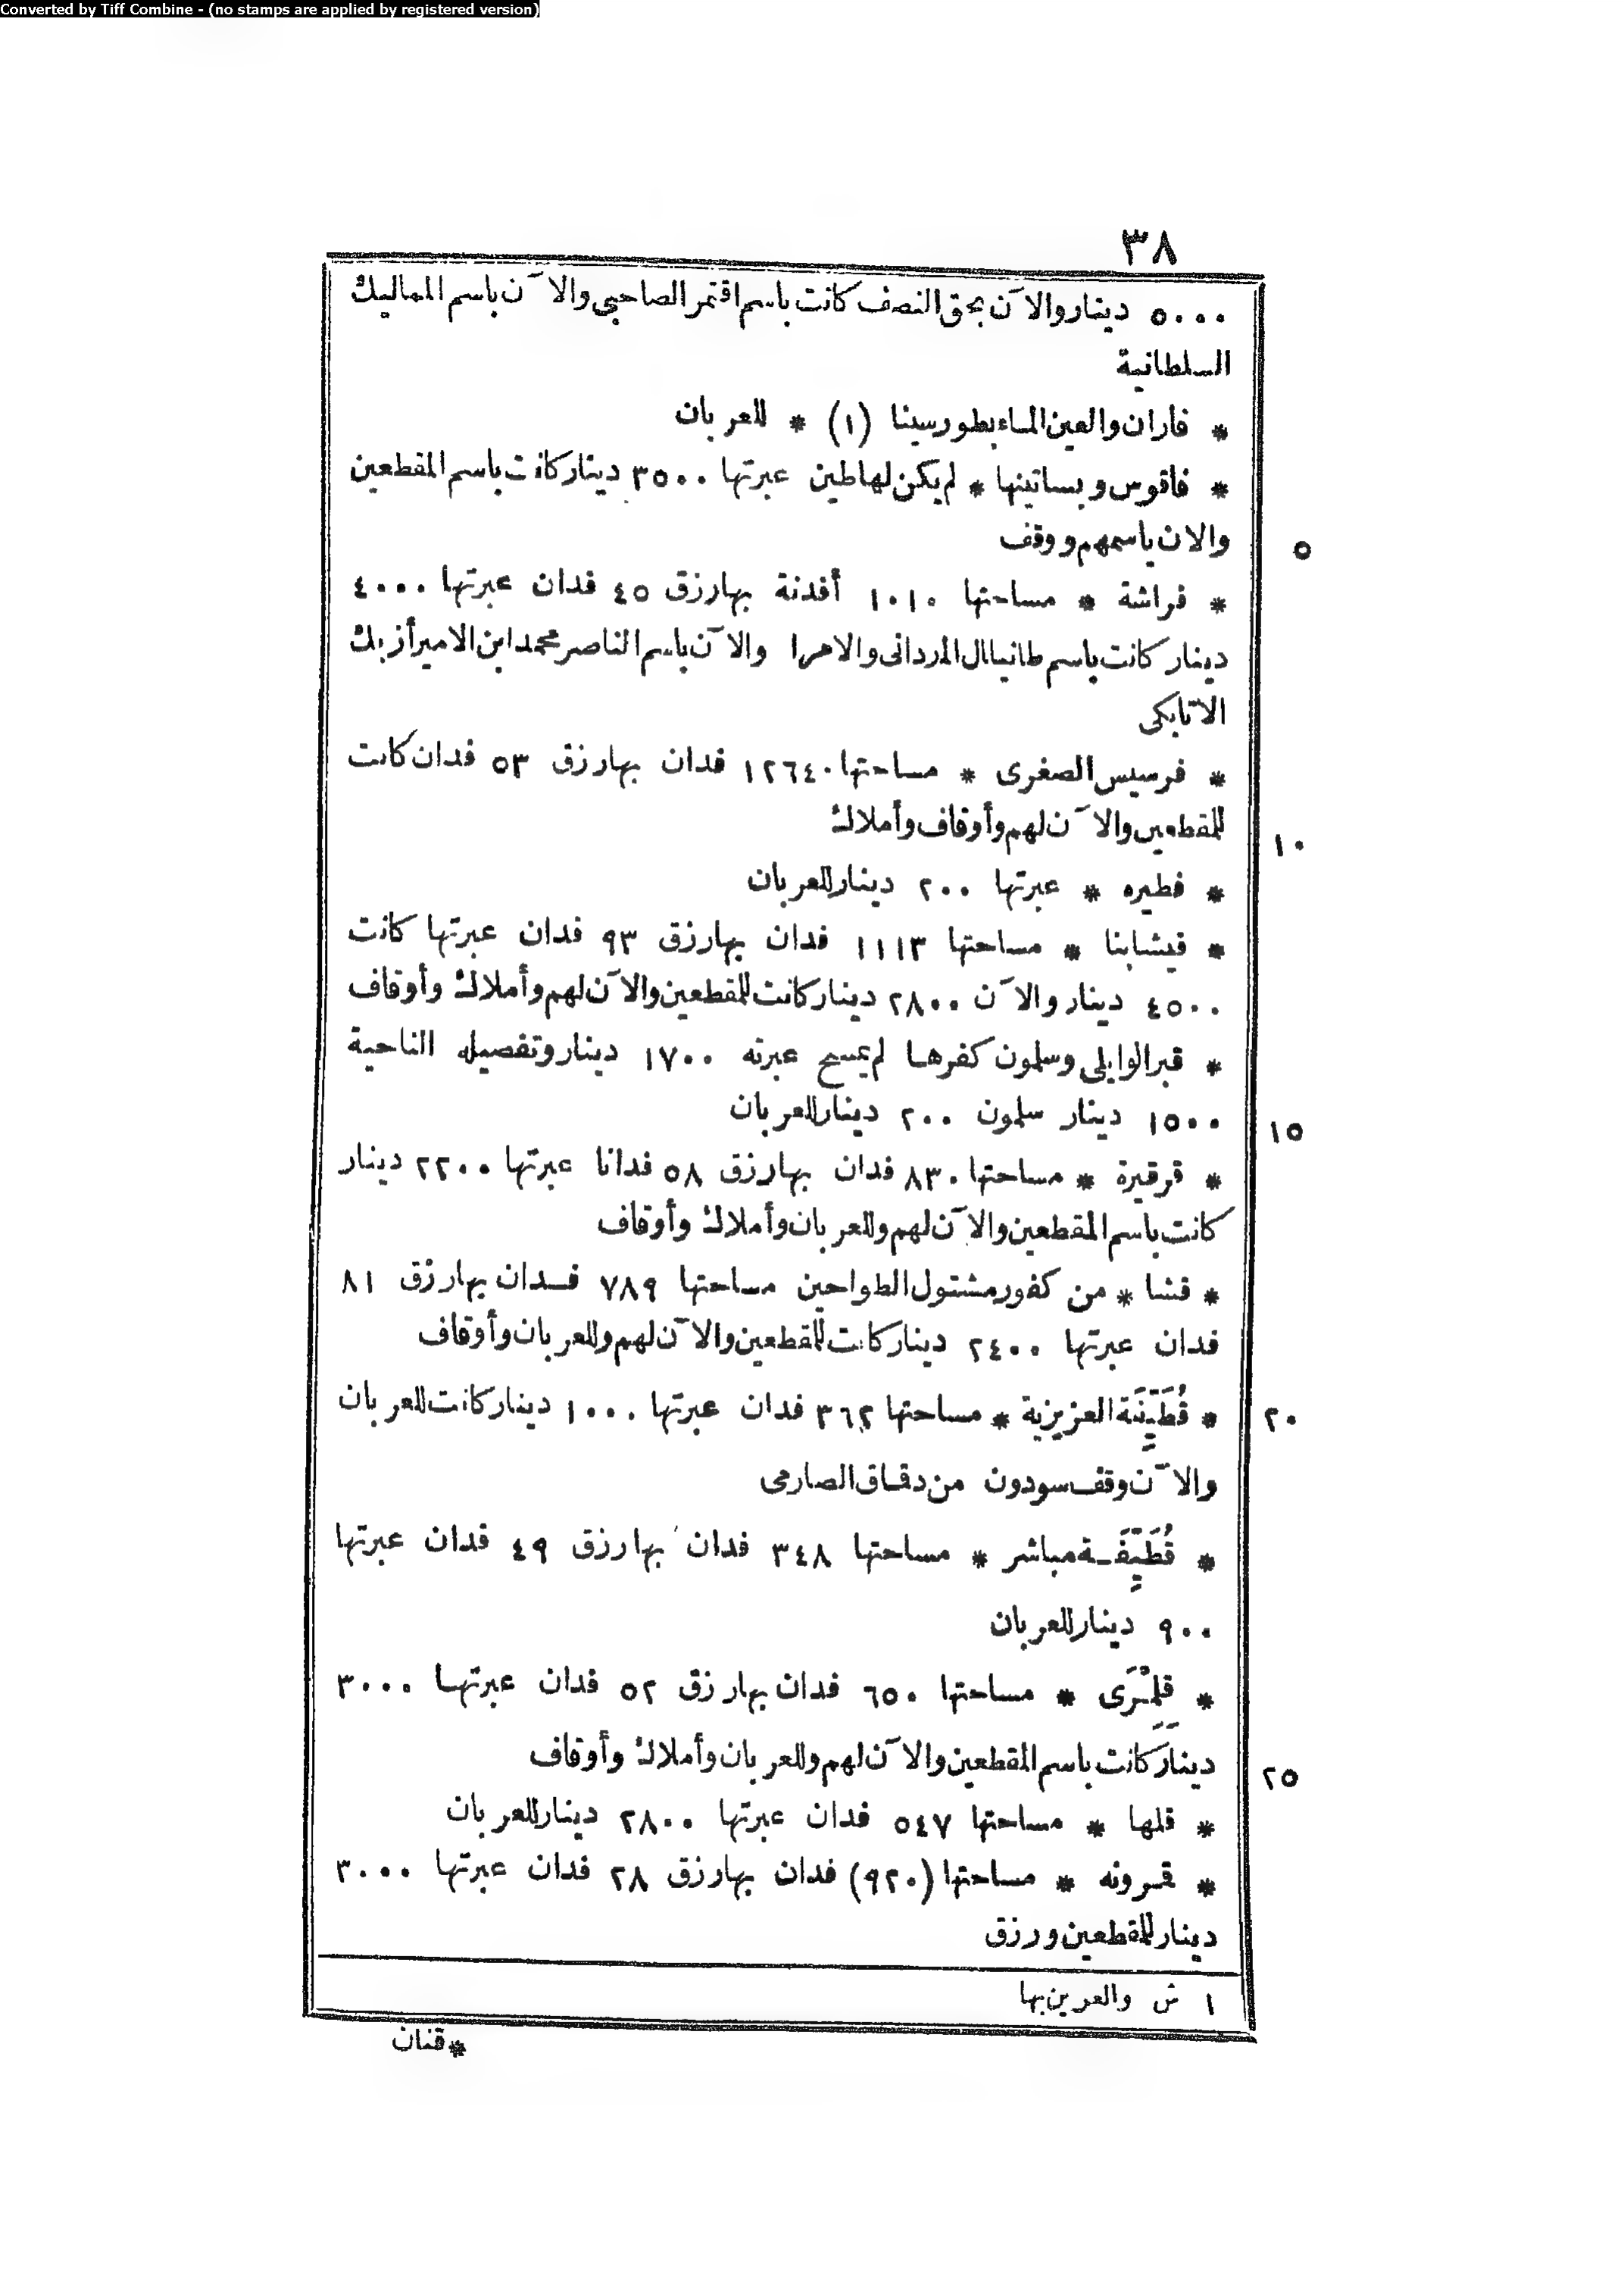 Converted by Tiff Combine - (no stamps are applied by registered version)
٣٨
٥٠٠٠ دينار والآن بحق النصف كانت باسم اقتمر الصاحبي والآن باسم المماليك
السلطانية
* فاران والعين الماء بطور سينا (١) * للعربان
* فاقوس وبساتينها * لم يكن لها طين عبرتها ٣٥٠٠ دينار كانت باسم المقطعين
والان باسمهم ووقف
٥
* فراشة * مساحتها ١٠١٠ أفدنة بها رزق ٤٥ فدان عبرتها ٤٠٠٠
دينار كانت باسم طانيبال المارداني والامرا والآن باسم الناصر محمد ابن الامير أزبك
الاتابكى
* فرسيس الصغرى * مساحتها ١٢٦٤٠ فدان بها رزق ٥٣ فدان كانت
للمقطعين والآن لهم وأوقاف وأملاك
١٠
* فطيره * عبرتها ٢٠٠ دينار للعربان
* قيشابنا * مساحتها ١١١٣ فدان بها رزق ٩٣ فدان عبرتها كانت
٤٥٠٠ دينار والآن ٢٨٠٠ دينار كانت للمقطعين والآن لهم وأملاك وأوقاف
* قبر الوايلى وسلمون كفرها لم يمسح عبرته ١٧٠٠ دينار وتفصيله الناحية
١٥٠٠ دينار سلمون ٢٠٠ دينار للعربان
١٥
* قرقيرة * مساحتها ٨٣٠ فدان بها رزق ٥٨ فدانا عبرتها ٢٢٠٠ دينار
كانت باسم المقطعين والآن لهم وللعربان وأملاك وأوقاف
* قشا * من كفور مشتول الطواحين مساحتها ٧٨٩ فدان بها رزق ٨١
فدان عبرتها ٢٤٠٠ دينار كانت للمقطعين والآن لهم وللعربان وأوقاف
* العزيزية * مساحتها ٣٦٢ فدان عبرتها ١٠٠٠ دينار كانت للعربان
٢٠
والآن وقف سودون من دقماق الصارمى
* قُطَيِّفَة مباشر * مساحتها ٣٤٨ فدان بها رزق ٤٩ فدان عبرتها
٩٠٠ دينار للعربان
* مساحتها ٦٥٠ فدان بها رزق ٥٢ فدان عبرتها ٣٠٠٠
دينار كانت باسم المقطعين والآن لهم وللعربان وأملاك وأوقاف
٢٥
* قلها * مساحتها ٥٤٧ فدان عبرتها ٢٨٠٠ دينار للعربان
* قمرونه * مساحتها (٩٢٠) فدان بها رزق ٢٨ فدان عبرتها ٣٠٠٠
دينار للمقطعين ورزق
١ ش والعرين بها
* قنان